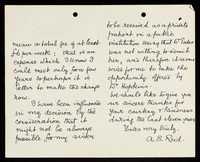 mean a total fee of at least
£6 per week; that is an
expense which I know I
could meet only for a few
years & perhaps it is
better to make the change
now.
I have been influenced
in my decision by the
consideration that it
might not be always
possible for my sister
to be received as a private
patient in a public
institution seeing that Dr.
was not willing to about
her, and therefore I
prize for me to take the
opportunity offered by
Dr Hopkins.
We should like to give you
our sincere thanks for
your courtesy & kindness
during the last eleven years
Yours very truly,
A. B. Reid.